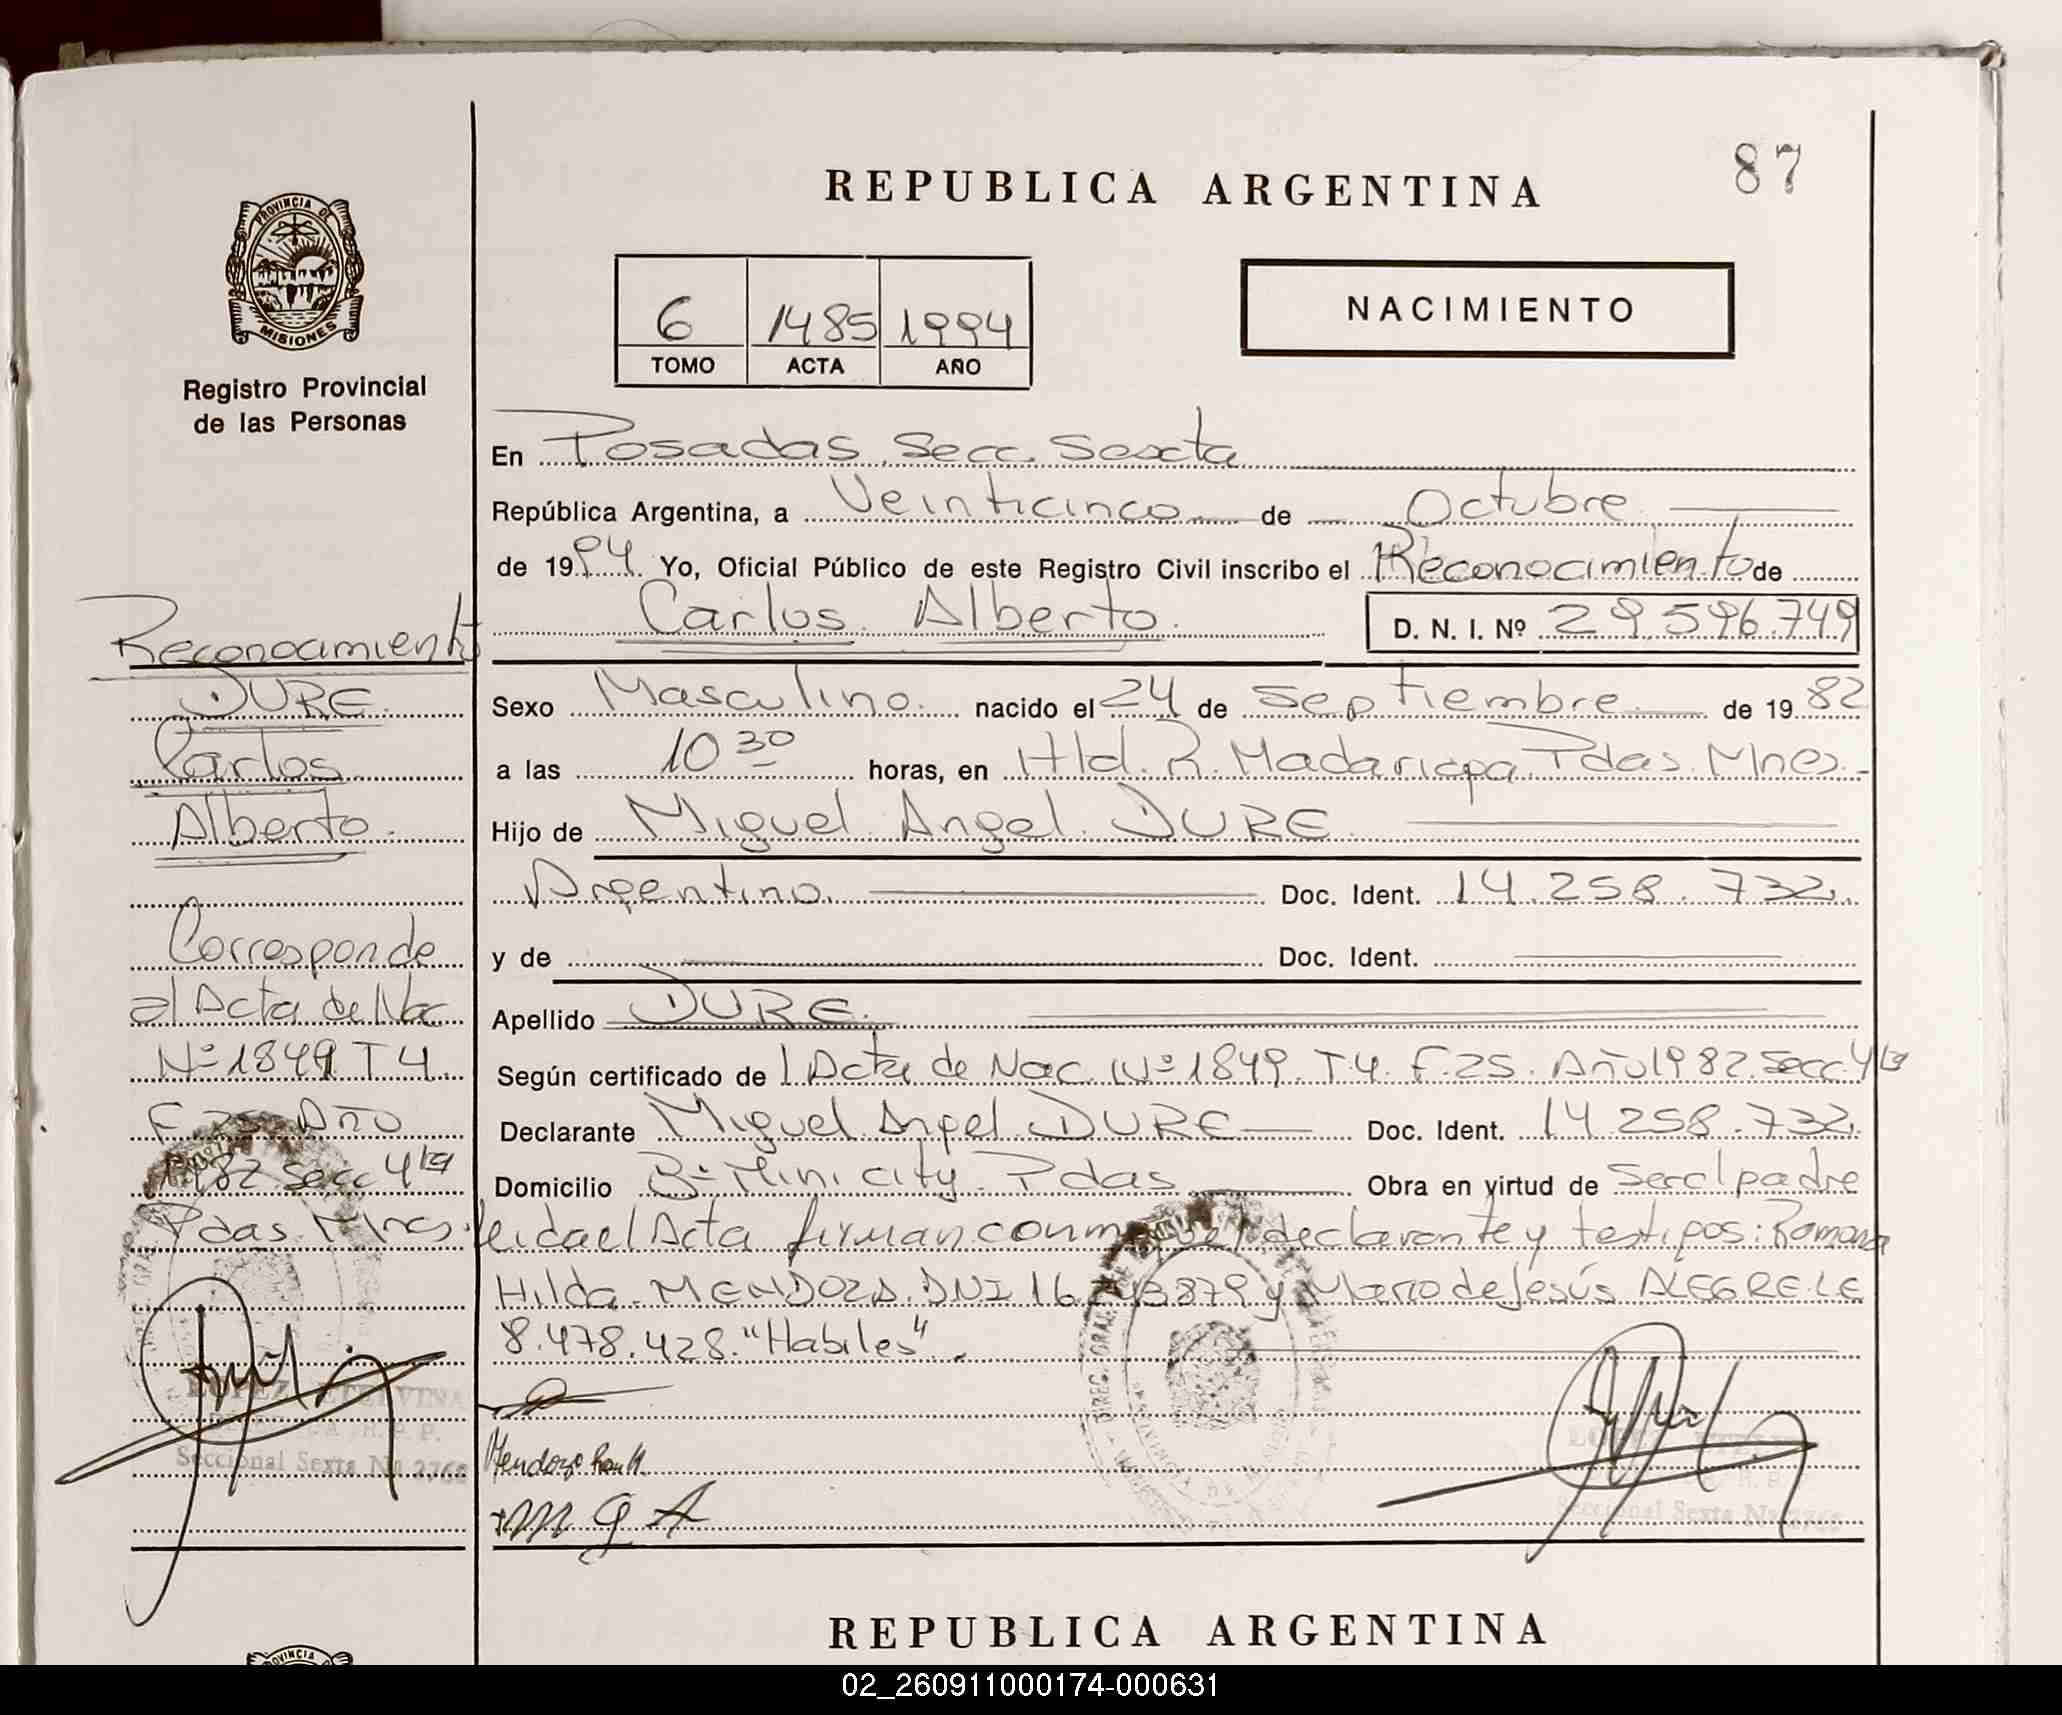 87
REPUBLICA ARGENTINA
PROVINCIA DE
MISIONES
Registro Provincial
de las Personas
6 1485 1994
TOMO ACTA AÑO
NACIMIENTO
En Posadas. Secc. Sexta
República Argentina, a Veinticinco de Octubre
de 1994 Yo, Oficial Público de este Registro Civil inscribo el Reconocimiento de
Carlos Alberto. D. N. I. Nº 29.596.749
Sexo Masculino. nacido el 24 de Septiembre de 1982
a las 10 30 horas, en Htd. R. Madariaga. Pdas. Mnes.
Hijo de Miguel Angel DURE
Argentino. Doc. Ident. 14.258.732.
y de Doc. Ident.
Apellido DURE.
Según certificado de 1 Acta de Nac. Nº 1849. T.4. F.25. Año 1982. Secc. 4ta
Declarante Miguel Angel DURE Doc. Ident. 14.258.732.
Domicilio Bº Mini city. Pdas Obra en virtud de ser el padre
leida el Acta firman conmigo el declarante y testigos: Romana
Hilda MENDOZA. DNI 16. 3879 y Mario de Jesús ALEGRE LE
8.478.428. "Habiles".
Mendoza
m g A
Seccional Sexta
Reconocimiento
DURE.
Carlos
Alberto.
Corresponde
al Acta de Nac
Nº 1849 T 4
F 25 Año
1982 secc 4ta
Pdas. Mnes.
LOPEZ ETELVINA
Seccional Sexta Nº 2768
REPUBLICA ARGENTINA
02_260911000174-000631